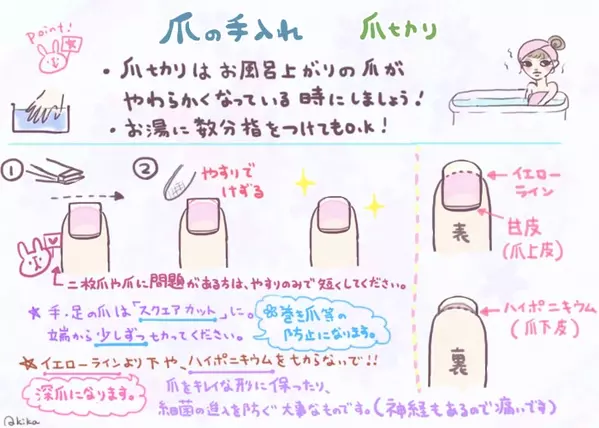 Point!
爪の手入れ 爪切り
・爪切りはお風呂上がりの爪が
やわらかくなっている時にしましょう!
・お湯に数分指をつけてもO.K!
①
② やすりで
けずる
二枚爪や爪に問題がある方は、やすりのみで短くしてください。
イエロー
ライン
甘皮
(爪上皮)
表
ハイポニキウム
(爪下皮)
裏
☆手・足の爪は「スクエアカット」に。
端から少しずつ切ってください。
※巻き爪等の
防止になります。
☆イエローラインより下や、ハイポニキウムを切らないで!!
深爪になります。
爪をキレイな形に保ったり、
細菌の進入を防ぐ大事なものです。(神経もあるので痛いです)